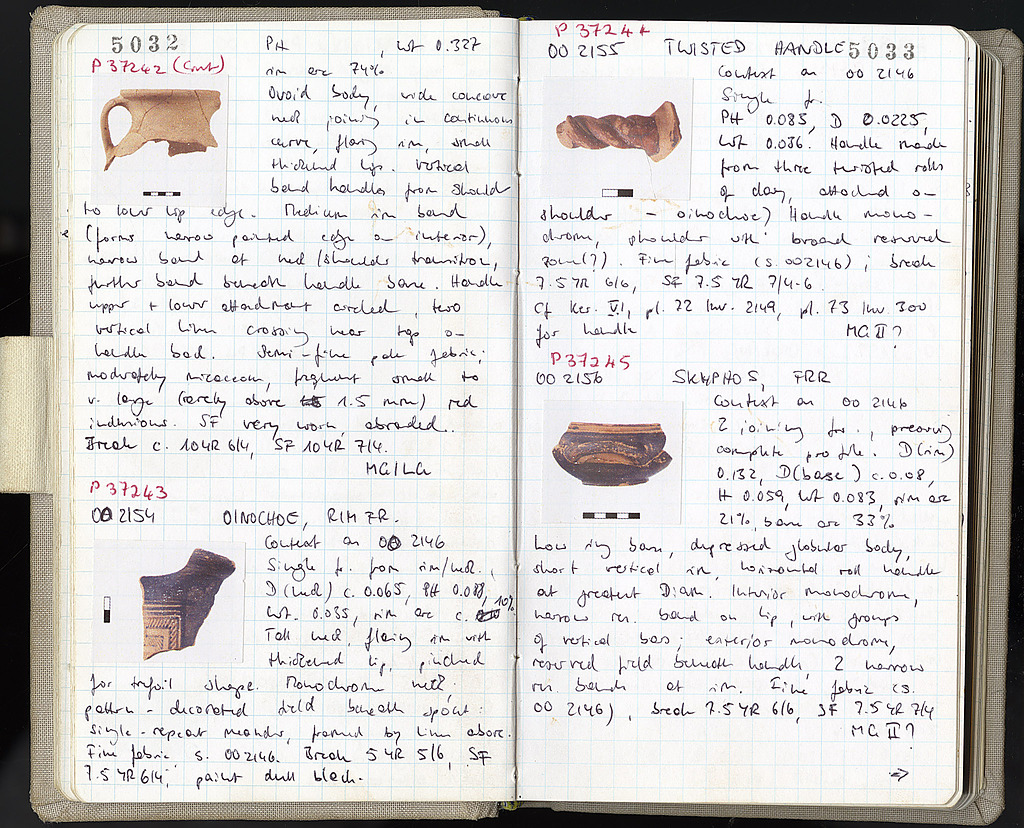 5032
P 37242 (Cont)
PH , Wt 0.327
rim arc 74%
Ovoid body, wide concave
neck joining in continuous
curve, flaring rim, small
thickened lip. Vertical
band handles from shoulder
to lower lip edge. Medium rim band
(forms narrow painted edge on interior),
narrow band at neck/shoulder transition,
further band beneath handle base. Handle
upper + lower attachment circled, two
vertical lines crossing near top on
handle back. Semi-fine pale fabric;
moderately micaceous, frequent small to
v. large (rarely above 1.5 mm) red
inclusions. SF very worn, abraded.
Break c. 10YR 6/4, SF 10YR 7/4.
MG/LG
P 37243
00 2154 OINOCHOE, RIM FR.
Context as 00 2146
Single fr. from rim/neck.
D (neck) c. 0.065, PH 0.088,
Wt. 0.035, rim arc c. 10%
Tall neck, flaring rim with
thickened lip, pinched
for trefoil shape. Monochrome neck,
pattern-decorated field beneath spout:
single-repeat meander, framed by lines above.
Fine fabric s. 00 2146. Break 5YR 5/6, SF
7.5YR 6/4, paint dull black.
P 37244
00 2155 TWISTED HANDLE 5033
Context as 00 2146
Single fr.
PH 0.085, D 0.0225,
Wt 0.036. Handle made
from three twisted rolls
of clay, attached on
shoulder – oinochoe? Handle mono-
chrome, shoulder with broad reserved
zone(?). Fine fabric (s. 002146); break
7.5YR 6/6, SF 7.5YR 7/4-6.
Cf Ker. V,1, pl. 72 Inv. 2149, pl. 73 Inv. 300
for handle MG II?
P 37245
00 2156 SKYPHOS, FRR
Context as 00 2146
2 joining frr., preserving
complete profile. D (rim)
0.132, D (base) c. 0.08,
H 0.059, Wt 0.083, rim arc
21%, base arc 33%
Low ring base, depressed globular body,
short vertical rim, horizontal roll handle
at greatest Diam. Interior monochrome,
narrow res. band on lip, with groups
of vertical bars; exterior monochrome,
reserved field beneath handle, 2 narrow
res. bands at rim. Fine fabric (s.
00 2146), break 7.5YR 6/6, SF 7.5YR 7/4
MG II?
⇒